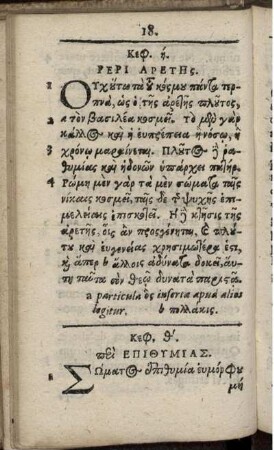 18.
Κεφ. ή.
ΡΕΡΙ ΑΡΕΤΗΣ.
1 ΟΥχ οὕτω τὰ τοῦ κόσμου πάντα τερ-
πνὰ, ὡς ὁ τῆς ἀρετῆς πλοῦτος,
a τὸν βασιλέα κοσμεῖ. τὸ μὲν γὰρ
2 κάλλος καὶ ἡ εὐπρέπεια ἢ νόσῳ, ἢ
3 χρόνῳ μαραίνεται. Πλοῦτος ἢ ῥα-
θυμίας καὶ ἡδονῶν ὑπάρχει πατήρ.
4 Ρώμη μὲν γὰρ τὰ μὲν σώματα ταῖς
νίκαις κοσμεῖ, τὰς δὲ τ͂ ψυχῆς ἐπι-
5 μελείας ἐπισκοτεῖ. Ἡ ἢ κτῆσις τῆς
ἀρετῆς, οἷς ἂν προσγένηται, ἓ πλού-
του καὶ εὐγενείας χρησιμωτέρα ἐστι,
κ̀ ἅπερ b ἄλλοις ἀδύνατα δοκεῖ, αὐ-
τη ταῦτα σὺν θεῷ δυνατὰ παριστᾶ.
a particula ὃς inserta apud alios
legitur. b πολλάκις.
Κεφ. θ΄.
πεὶ ΕΠΙΘΥΜΙΑΣ.
1 Σώματος ἐπιθυμία εὐμόρφου
μὴ